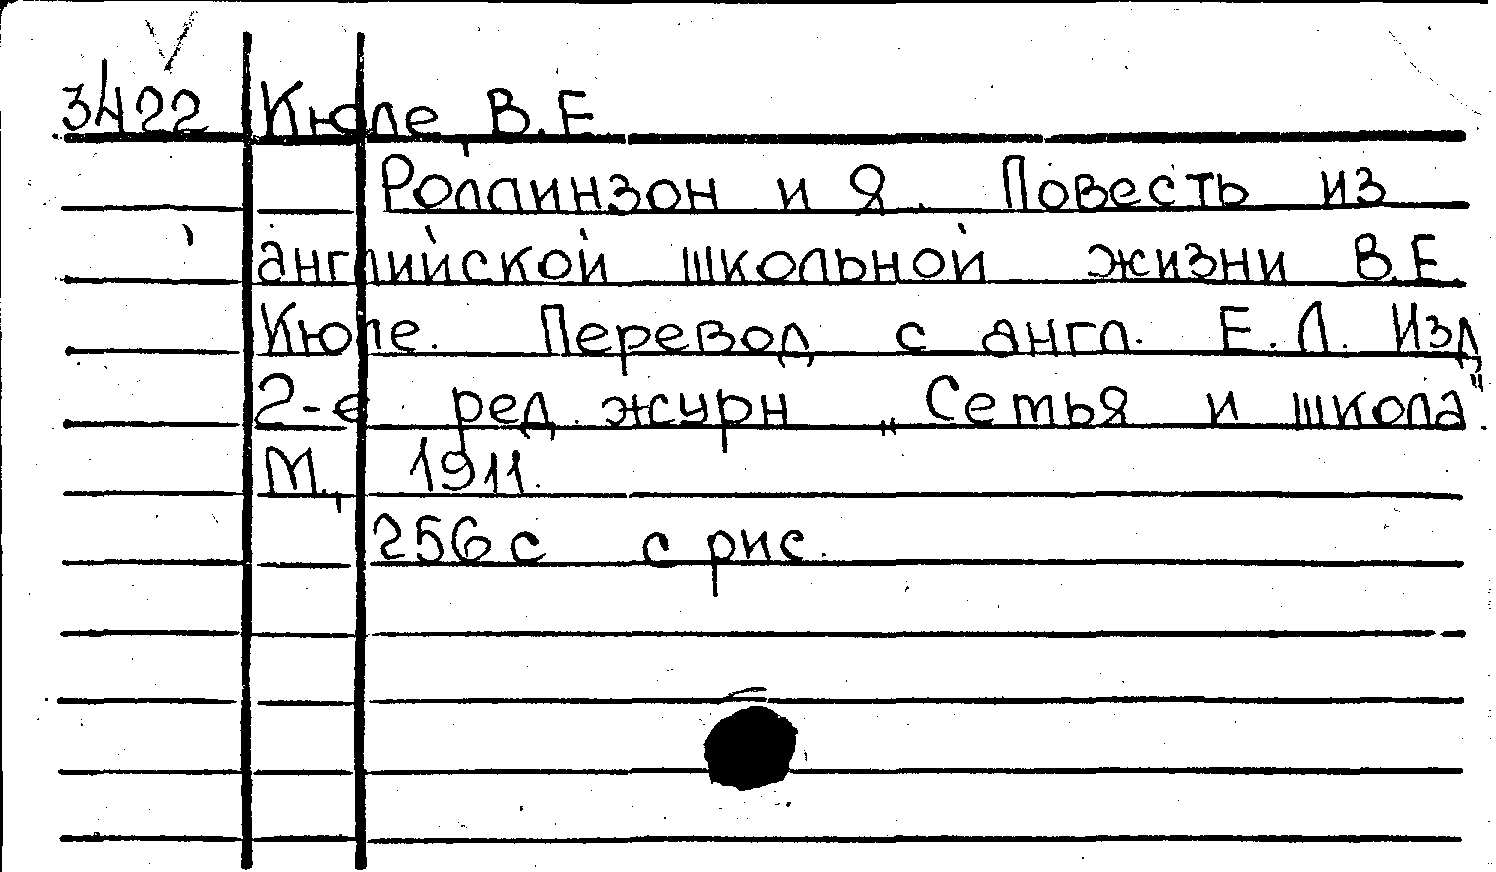 3422 Кюле В.Е
Роллинзон и Я. Повесть из
английской школьной жизни В.Е.
Кюле. Перевод с англ. Е.Л. Изд
2-е ред. журн „Семья и школа"
М., 1911.
256 с с рис.